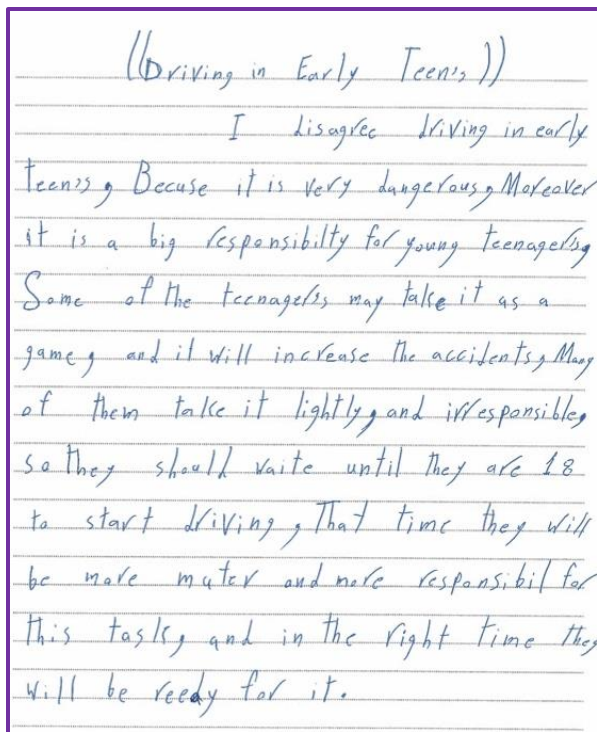 ((Driving in Early Teen's))
I disagree driving in early
teen's, Becuse it is very dangerous, Moreover
it is a big responsibilty for young teenager's,
Some of the teenager's may take it as a
game, and it will increase the accidents, Many
of them take it lightly, and irresponsible,
so they should waite until they are 18
to start driving, That time they will
be more mater and more responsibil for
this task, and in the right time they
will be reedy for it.